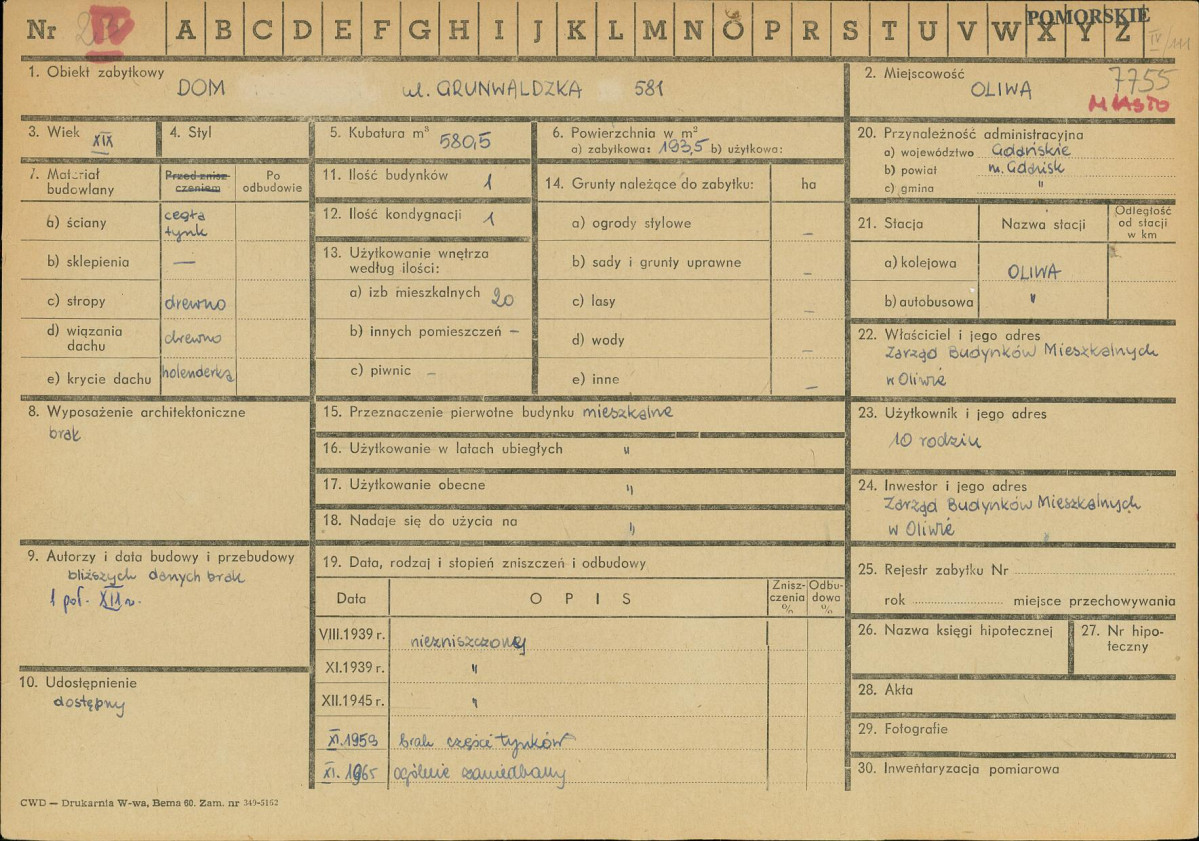 Nr IV A B C D E F G H I J K L M N O P R S T U V W X Y Z POMORSKIE IV/111
1. Obiekt zabytkowy
DOM ul. GRUNWALDZKA 581
2. Miejscowość 7755
OLIWA MIASTO
3. Wiek XIX
4. Styl
5. Kubatura m³ 580,5
6. Powierzchnia w m²
a) zabytkowa: 193,5 b) użytkowa:
7. Materiał budowlany
Przed znisz-
czeniem
Po
odbudowie
a) ściany cegła
tynk
b) sklepienia —
c) stropy drewno
d) wiązania
dachu drewno
e) krycie dachu holenderka
8. Wyposażenie architektoniczne
brak
9. Autorzy i data budowy i przebudowy
bliższych danych brak
1 poł. XIX w.
10. Udostępnienie
dostępny
11. Ilość budynków 1
12. Ilość kondygnacji 1
13. Użytkowanie wnętrza
według ilości:
a) izb mieszkalnych 20
b) innych pomieszczeń –
c) piwnic –
14. Grunty należące do zabytku: ha
a) ogrody stylowe –
b) sady i grunty uprawne –
c) lasy –
d) wody –
e) inne –
15. Przeznaczenie pierwotne budynku mieszkalne
16. Użytkowanie w latach ubiegłych "
17. Użytkowanie obecne "
18. Nadaje się do użycia na "
19. Data, rodzaj i stopień zniszczeń i odbudowy
Data OPIS
Znisz-
czenia
%
Odbu-
dowa
%
VIII.1939 r. niezniszczony
XI.1939 r. "
XII.1945 r. "
XI.1959 brak części tynków
XI.1965 ogólnie zaniedbany
20. Przynależność administracyjna
a) województwo Gdańskie
b) powiat m. Gdańsk
c) gmina "
21. Stacja Nazwa stacji
Odległość
od stacji
w km
a) kolejowa OLIWA
b) autobusowa "
22. Właściciel i jego adres
Zarząd Budynków Mieszkalnych
w Oliwie
23. Użytkownik i jego adres
10 rodzin
24. Inwestor i jego adres
Zarząd Budynków Mieszkalnych
w Oliwie
25. Rejestr zabytku Nr
rok miejsce przechowywania
26. Nazwa księgi hipotecznej
27. Nr hipo-
teczny
28. Akta
29. Fotografie
30. Inwentaryzacja pomiarowa
CWD — Drukarnia W-wa, Bema 60. Zam. nr 349-5162